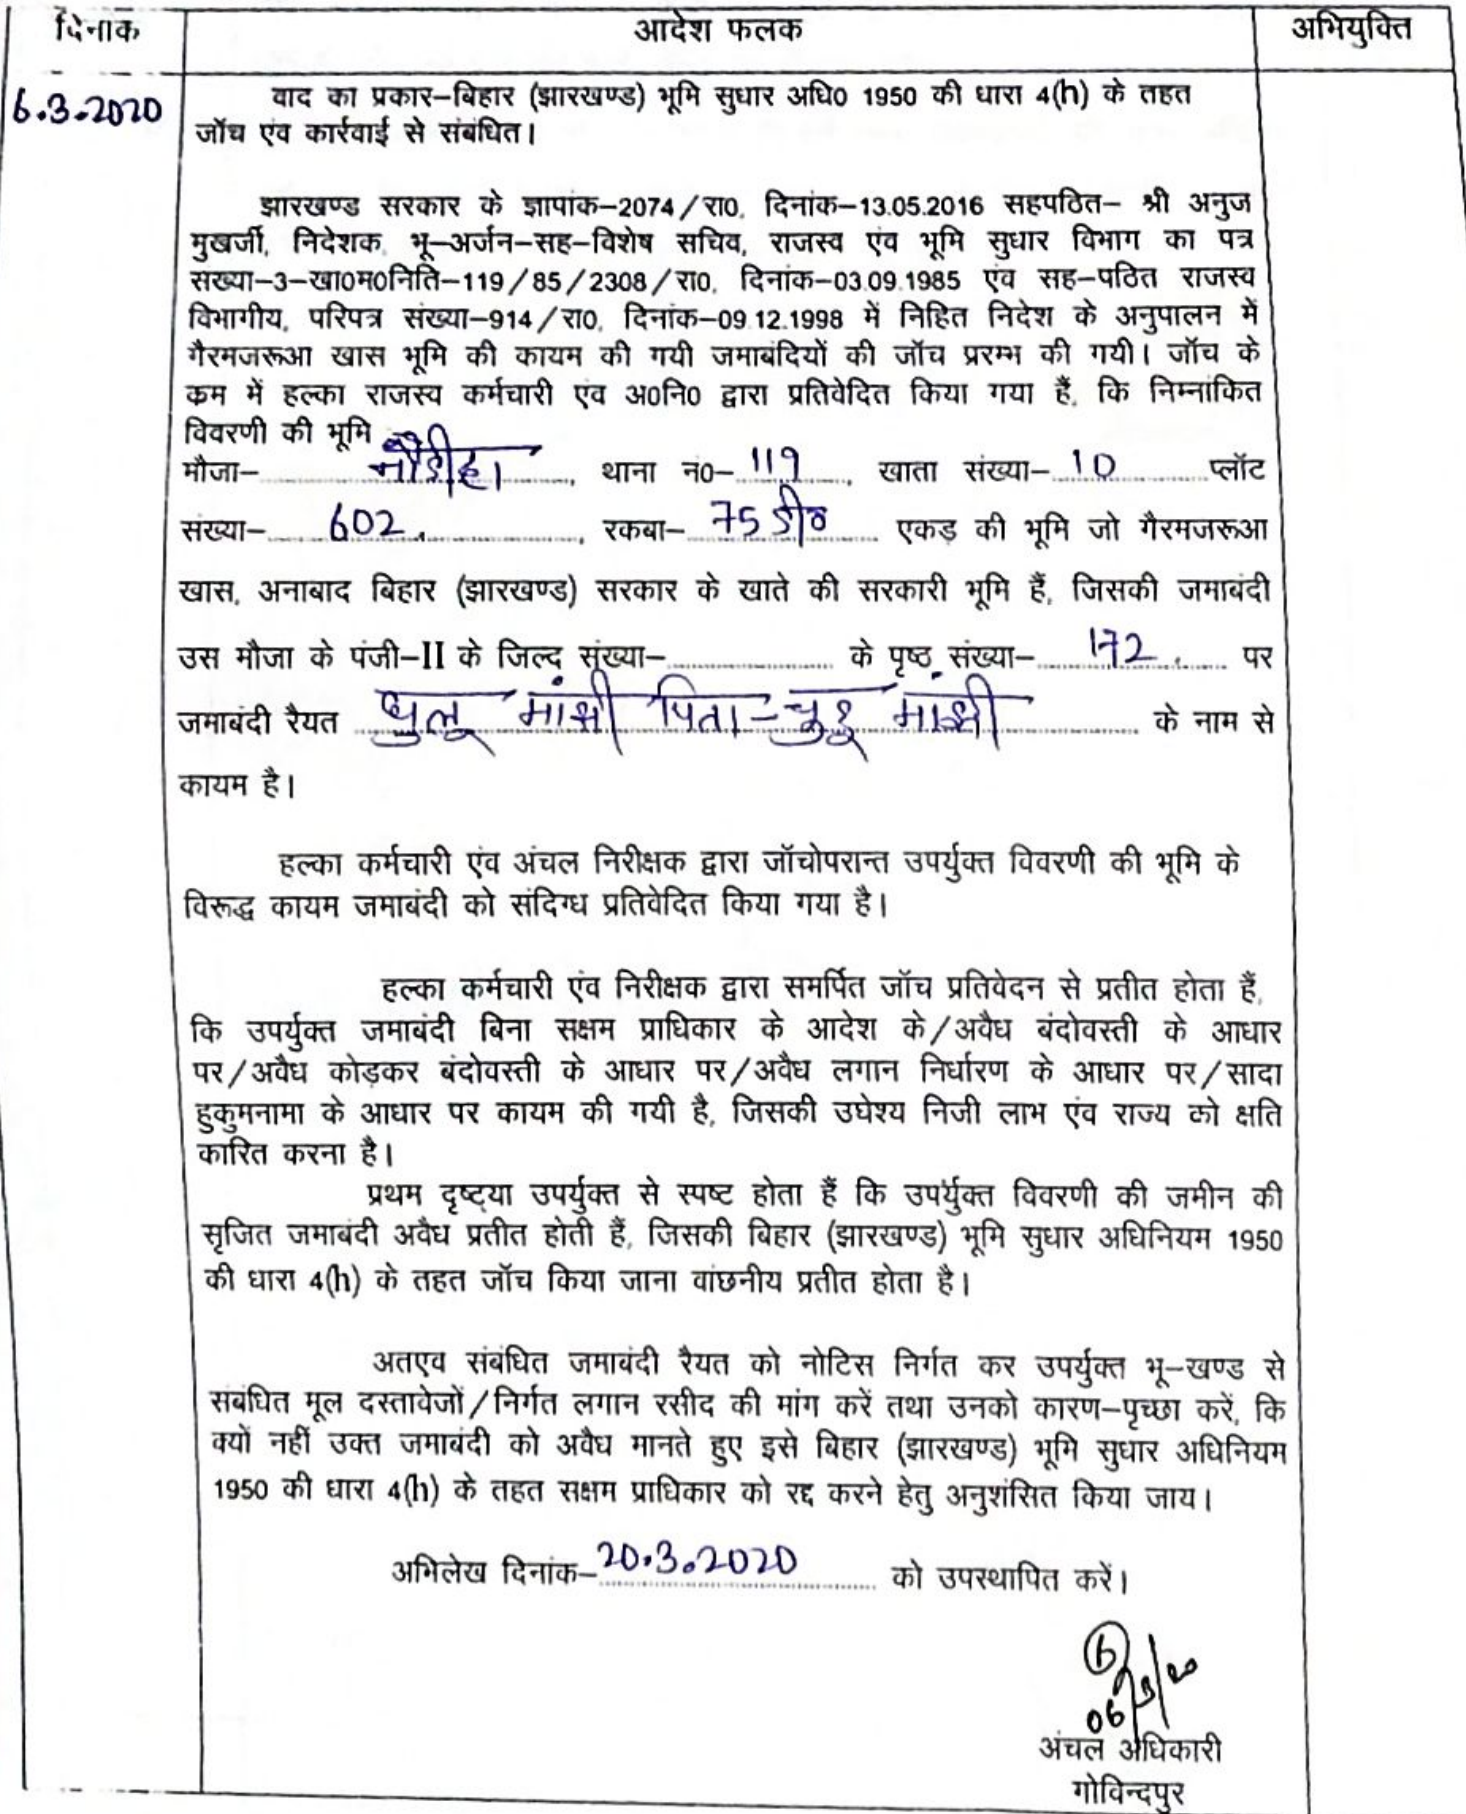 दिनाक आदेश फलक अभियुक्ति
6.3.2020
वाद का प्रकार–बिहार (झारखण्ड) भूमि सुधार अधि0 1950 की धारा 4(h) के तहत
जॉच एंव कार्रवाई से संबंधित।
झारखण्ड सरकार के ज्ञापांक–2074/रा0, दिनांक–13.05.2016 सहपठित– श्री अनुज
मुखर्जी, निदेशक, भू–अर्जन–सह–विशेष सचिव, राजस्व एंव भूमि सुधार विभाग का पत्र
सख्या–3–खा0म0निति–119/85/2308/रा0, दिनांक–03.09.1985 एंव सह–पठित राजस्व
विभागीय, परिपत्र संख्या–914/रा0, दिनांक–09.12.1998 में निहित निदेश के अनुपालन में
गैरमजरूआ खास भूमि की कायम की गयी जमाबंदियों की जॉच प्ररम्भ की गयी। जॉच के
कम में हल्का राजस्व कर्मचारी एंव अ0नि0 द्वारा प्रतिवेदित किया गया हैं, कि निम्नांकित
विवरणी की भूमि
मौजा– नौडीहा, थाना नं0– 119, खाता संख्या– 10 प्लॉट
संख्या– 602, रकबा– 75 डी0 एकड़ की भूमि जो गैरमजरूआ
खास, अनाबाद बिहार (झारखण्ड) सरकार के खाते की सरकारी भूमि हैं, जिसकी जमाबंदी
उस मौजा के पंजी–II के जिल्द संख्या– के पृष्ठ संख्या– 172. पर
जमाबंदी रैयत मांझी पिता – मांझी के नाम से
कायम है।
हल्का कर्मचारी एंव अंचल निरीक्षक द्वारा जॉचोपरान्त उपर्युक्त विवरणी की भूमि के
विरूद्ध कायम जमाबंदी को संदिग्ध प्रतिवेदित किया गया है।
हल्का कर्मचारी एंव निरीक्षक द्वारा समर्पित जॉच प्रतिवेदन से प्रतीत होता हैं,
कि उपर्युक्त जमाबंदी बिना सक्षम प्राधिकार के आदेश के/अवैध बंदोवस्ती के आधार
पर/अवैध कोड़कर बंदोवस्ती के आधार पर/अवैध लगान निर्धारण के आधार पर/सादा
हुकुमनामा के आधार पर कायम की गयी है, जिसकी उघेश्य निजी लाभ एंव राज्य को क्षति
कारित करना है।
प्रथम दृष्ट्या उपर्युक्त से स्पष्ट होता हैं कि उपर्युक्त विवरणी की जमीन की
सृजित जमाबंदी अवैध प्रतीत होती हैं, जिसकी बिहार (झारखण्ड) भूमि सुधार अधिनियम 1950
की धारा 4(h) के तहत जॉच किया जाना वांछनीय प्रतीत होता है।
अतएव संबंधित जमाबंदी रैयत को नोटिस निर्गत कर उपर्युक्त भू–खण्ड से
संबंधित मूल दस्तावेजों/निर्गत लगान रसीद की मांग करें तथा उनको कारण–पृच्छा करें, कि
क्यों नहीं उक्त जमाबंदी को अवैध मानते हुए इसे बिहार (झारखण्ड) भूमि सुधार अधिनियम
1950 की धारा 4(h) के तहत सक्षम प्राधिकार को रद्द करने हेतु अनुशंसित किया जाय।
अभिलेख दिनांक– 20.3.2020 को उपस्थापित करें।
06/3/20
अंचल अधिकारी
गोविन्दपुर